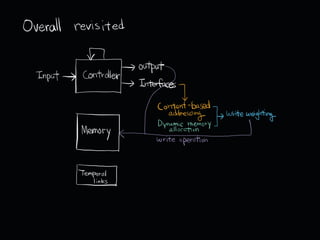 Overall revisited
Input
Controller
output
Interface
Content-based
addressing
Dynamic memory
allocation
write weighting
write operation
Memory
Temporal
links